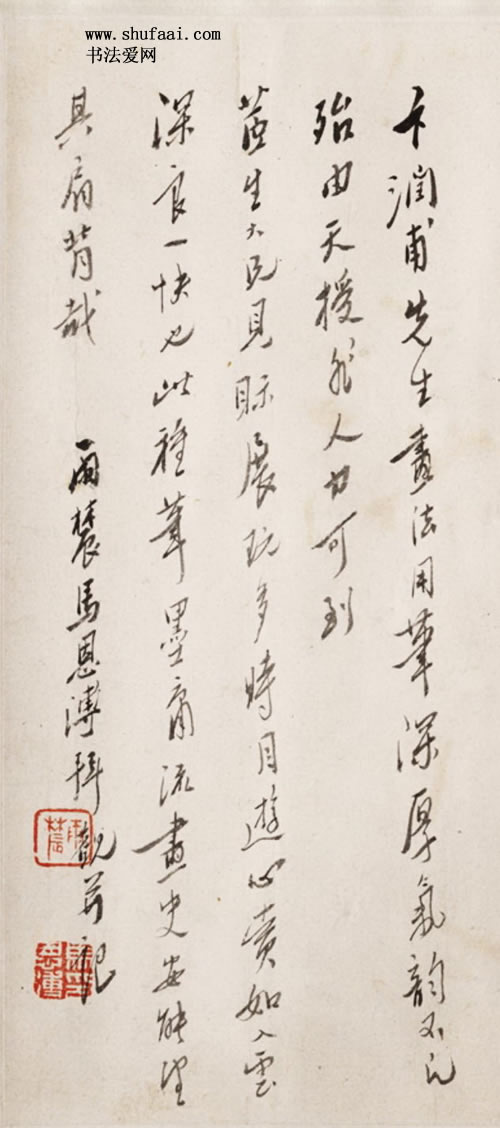 www.shufaai.com
书法爱网
卞潤甫先生畫法用筆深厚氣韵不凡
殆由天授非人力可到
茝生大兄見眎展玩多時目遊心賞如入雲
深良一快也此種筆墨庸流畫史安能望
其肩背哉
雨辳馬恩溥拜觀并記
雨辳